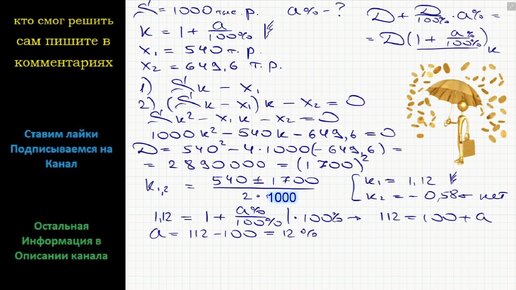 кто смог решить
сам пишите в
комментариях
Ставим лайки
Подписываемся на
Канал
Остальная
Информация в
Описании канала
S = 1000 тыс. р.  a% - ?
k = 1 + a/100%
x₁ = 540 т. р.
x₂ = 649,6 т. р.
1) Sk - x₁
2) (Sk - x₁)k - x₂ = 0
Sk² - x₁k - x₂ = 0
1000k² - 540k - 649,6 = 0
D = 540² - 4·1000(-649,6) =
= 2890000 = (1700)²
k₁,₂ = (540 ± 1700)/(2·1000)  [k₁ = 1,12
k₂ = -0,58 - нет
1,12 = 1 + a%/100% | · 100% → 112 = 100 + a
a = 112 - 100 = 12%
D + D/100% · a% =
= D(1 + a%/100%)
k